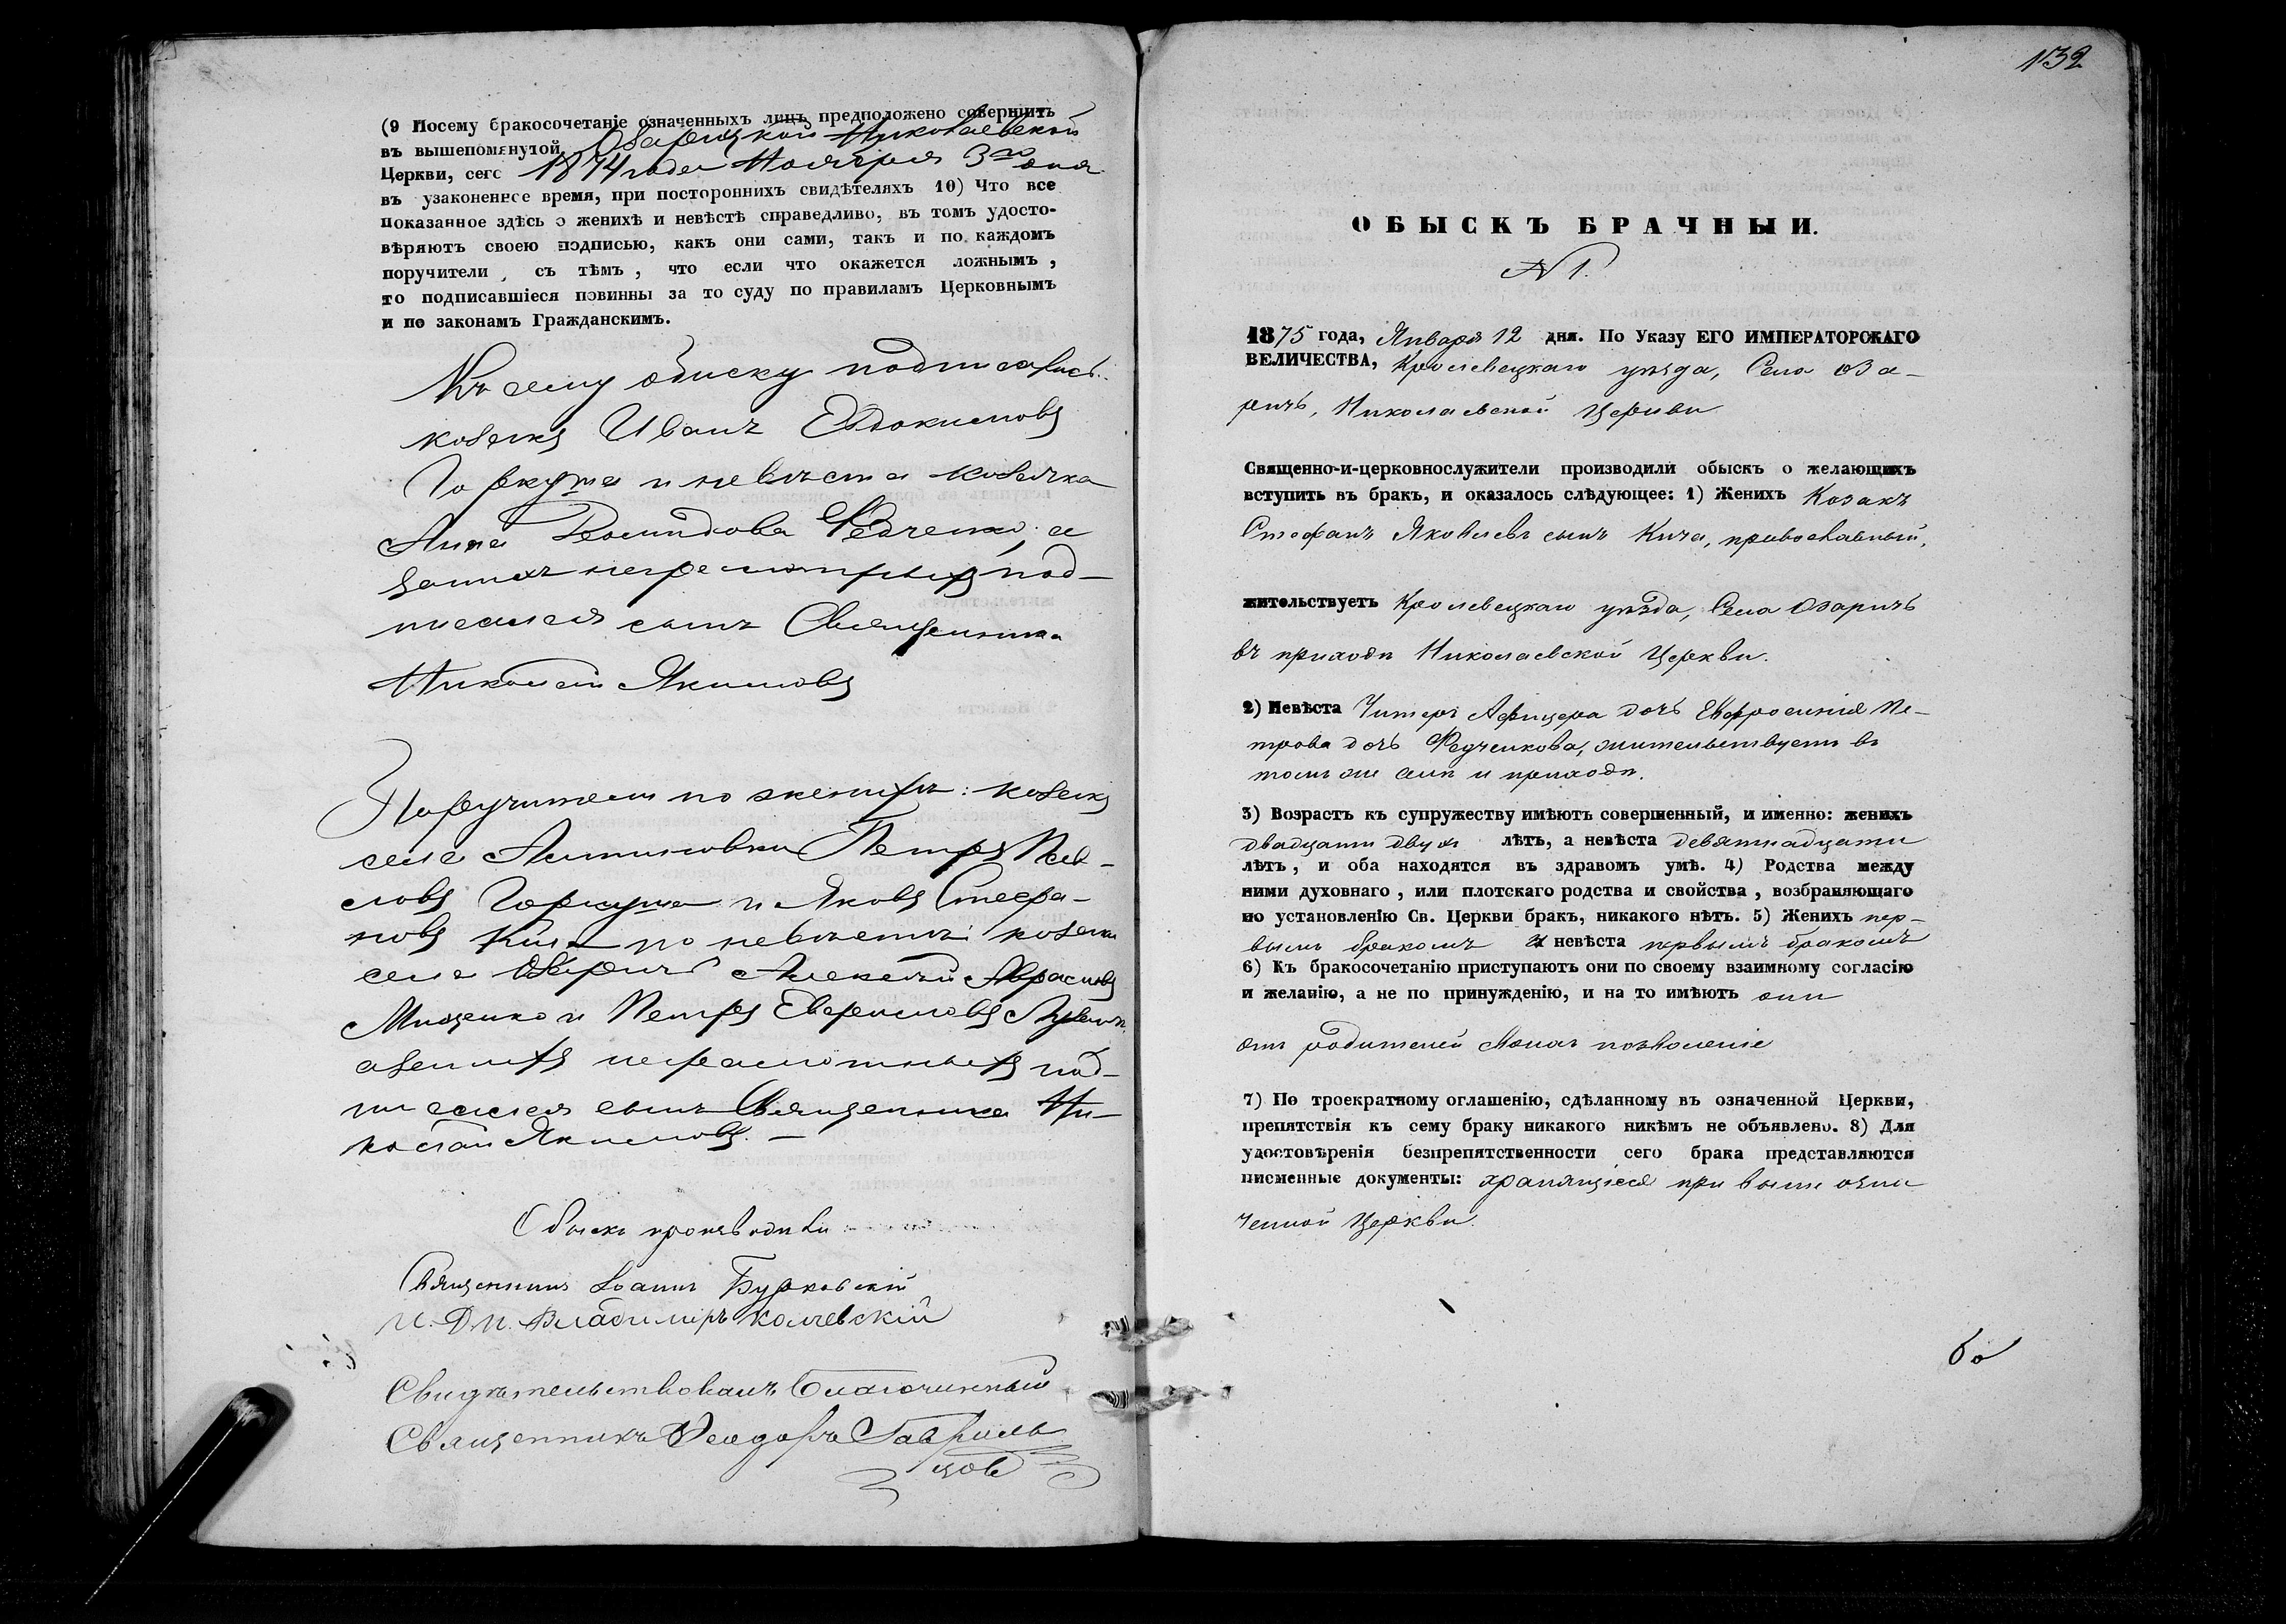 (9 Посему бракосочетаніе означенныхъ лицъ предположено совершить
въ вышепомянутой Озарицкой Николаевской
Церкви, сего 1874 года Ноября 3го дня
въ узаконенное время, при постороннихъ свидѣтеляхъ 10) Что все
показанное здѣсь о женихѣ и невѣстѣ справедливо, въ томъ удосто-
вѣряютъ своею подписью, какъ они сами, такъ и по каждомъ
поручители, съ тѣмъ, что если что окажется ложнымъ,
то подписавшіеся повинны за то суду по правиламъ Церковнымъ
и по законамъ Гражданскимъ.
Къ сему обыску подписались
козакъ Иванъ Евдокимовъ
Горкуша и невѣста козачка
Анна Демидова Федченко, а
за нихъ неграмотныхъ под-
писался сынъ Священника
Николай Якимовъ
Поручители по женихѣ: козаки
села Петръ Пав-
ловъ Горкуша и Яковъ Стефа-
новъ по невѣстѣ козаки
села Озаричъ Алексѣй
Мищенко и Петръ
а за нихъ неграмотныхъ под-
писался сынъ Священника Ни-
колай Якимовъ. —
Обыскъ производили
Священникъ Іоаннъ Бурковскій
И. Д. П. Владимиръ
Свидѣтельствовалъ Благочинный
Священникъ Феодоръ Гавриль
цовъ
132
ОБЫСКЪ БРАЧНЫЙ.
N 1.
1875 года, Января 12 дня. По Указу ЕГО ИМПЕРАТОРСКАГО
ВЕЛИЧЕСТВА, Кролевецкаго уѣзда, Села Оза-
ричъ, Николаевской Церкви
Священно-и-церковнослужители производили обыскъ о желающихъ
вступить въ бракъ, и оказалось слѣдующее: 1) Женихъ Козакъ
Стефанъ Яковлевъ сынъ Кича, православный,
жительствуетъ Кролевецкаго уѣзда, Села Озаричъ
въ приходѣ Николаевской Церкви.
2) Невѣста Унтеръ Афицера дочь Евфросинія Пе-
трова дочь Федченкова, жительствуетъ въ
томъ же селѣ и приходѣ.
3) Возрастъ къ супружеству имѣютъ совершенный, и именно: женихъ
двадцати двухъ лѣтъ, а невѣста девятнадцати
лѣтъ, и оба находятся въ здравомъ умѣ. 4) Родства между
ними духовнаго, или плотскаго родства и свойства, возбраняющаго
по установленію Св. Церкви бракъ, никакого нѣтъ. 5) Женихъ пер-
вымъ бракомъ и невѣста первымъ бракомъ
6) Къ бракосочетанію приступаютъ они по своему взаимному согласію
и желанію, а не по принужденію, и на то имѣютъ они
отъ родителей позволеніе
7) По троекратному оглашенію, сдѣланному въ означенной Церкви,
препятствія къ сему браку никакого никѣмъ не объявлено. 8) Для
удостовѣренія безпрепятственности сего брака представляются
писменные документы: хранящіеся при выше озна
ченной Церкви.